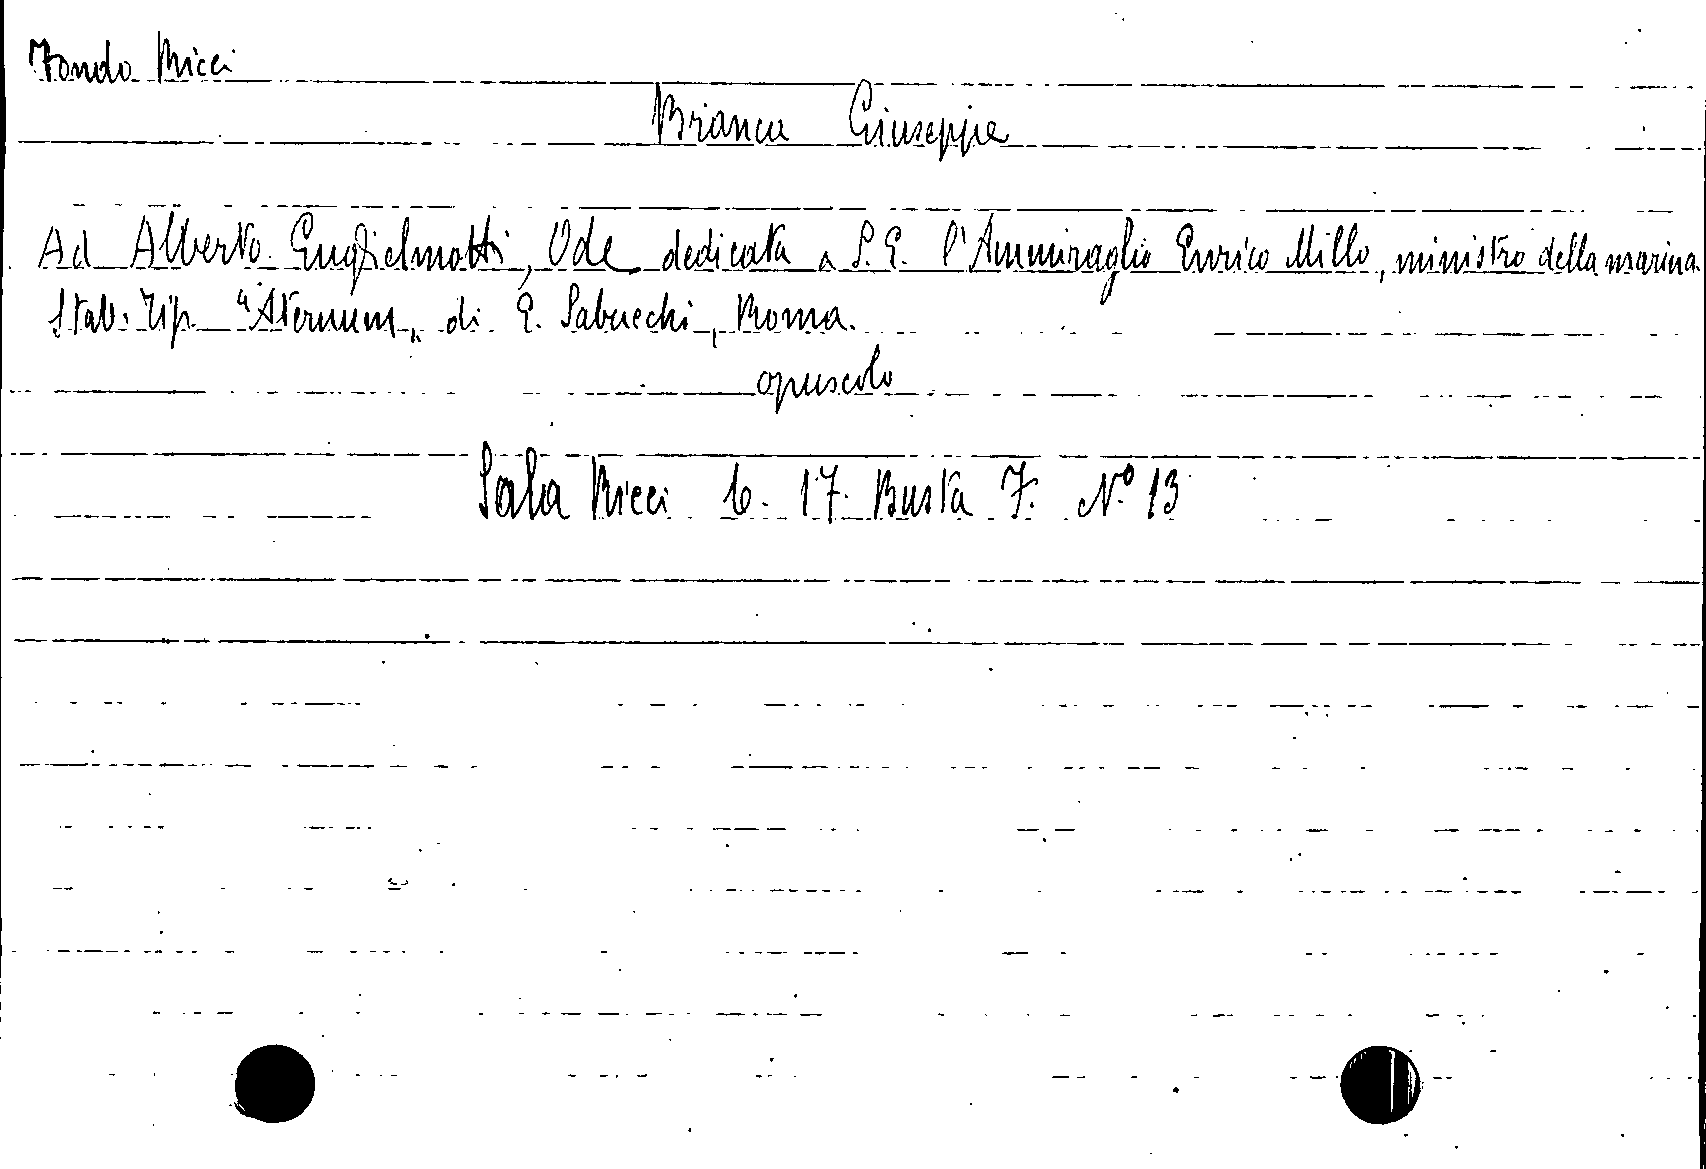 Fondo Ricci
Branca Giuseppe
Ad Alberto Guglielmotti, Ode dedicata a S.E. l'Ammiraglio Enrico Millo, ministro della marina.
Stab. Tip. "Aternum" di E. Sabucchi, Roma.
opuscolo
Sala Ricci 6. 17. Busta 7. N.º 13